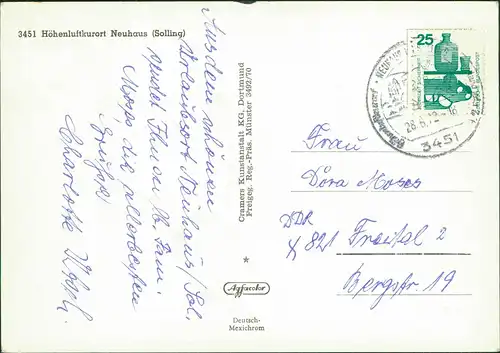 3451 Höhenluftkurort Neuhaus (Solling)
Aus dem schönen
Urlaubsort Neuhaus/Sol.
sendet Ihnen lb. Fam.
Moses die allerbesten
Grüße
Charlotte
Cramers Kunstanstalt KG, Dortmund
Freigeg. Reg.-Präs. Münster 3492/70
*
Agfacolor
Deutsch-
Mexichrom
25
NEUHAUS
3451
Frau
Dora Moses
DDR
x 821 Freital 2
Bergstr. 19